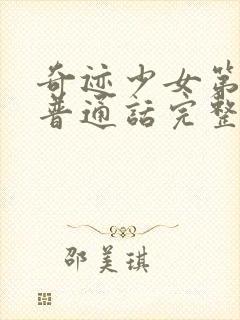 奇迹少女第
普通话完整
邵美琪